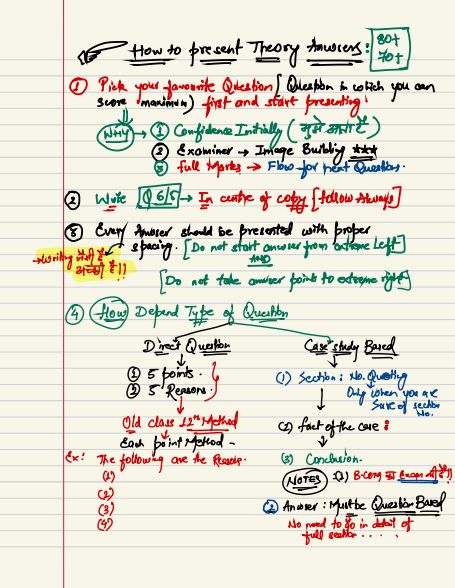 How to present Theory Answers:
80+
70+
① Pick your favourite Question [Question in which you can
score maximum] first and start presenting.
WHY → ① Confidence Initially (मुझे आता है)
② Examiner → Image Building ***
③ full Marks → Flow for next Question.
② Write Q 6/5 → In centre of copy [follow Always]
③ Every Answer should be presented with proper
spacing. [Do not start answer from extreme Left]
AND
→ Writing
[Do not take answer points to extreme right]
④ How Depend Type of Question
Direct Question
① 5 points.
② 5 Reasons.
Old class 12th Method
Each point Method -
Ex: The following are the Reasons.
(1)
(2)
(3)
(4)
Case study Based
(1) Section: No. Quoting
Only when you are
Sure of section
No.
(2) fact of the case:
(3) Conclusion.
NOTES: (1) B.com का Exam
② Answer: Must be Question Based
No need to go in detail of
full section .....